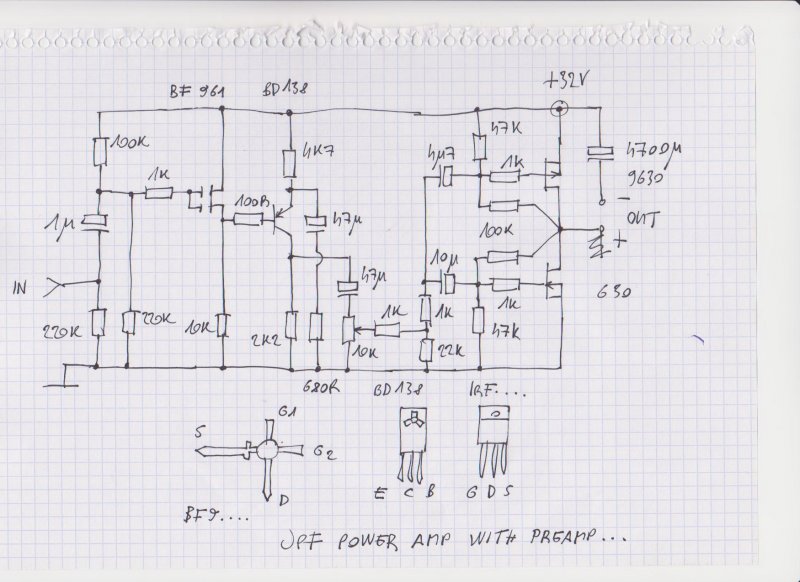 BF 961
BD 138
+32V
100K
1K
4K7
47K
4µ7
1K
4700µ
9630
1µ
100R
47µ
100K
OUT
-
+
IN
47µ
10µ
1K
630
220K
220K
10K
2K2
10K
1K
1K
22K
47K
680R
BD 138
IRF....
S
G1
G2
D
BF9....
E C B
G D S
JPF POWER AMP WITH PREAMP...